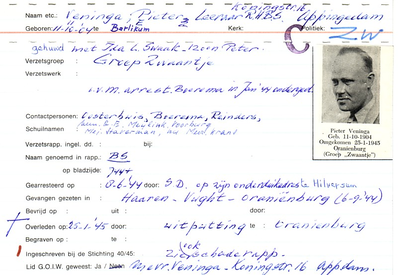 Koningstr. 16
Naam etc.: Veninga, Pieter Leeraar R.H.B.S. Appingedam
Geboren: 11-10-04 te Berlikum Kerk: Politiek:
C ZW
gehuwd met Ida L. Swaak - zoon Peter.
Verzetsgroep Groep Zwaantje
Verzetswerk :
i.v.m. arrest. Bierema in Jan 44 onderged.
Contactpersonen: Oosterhuis, Bierema, Reinders,
Schuilnamen
Verzetsrapp. ingel. dd. : bij:
Naam genoemd in rapp.: BS
op bladzijde: J44
Gearresteerd op -6-'44 door: S.D. op zijn onderduikadres te Hilversum
Gevangen gezeten in: Haaren - Vught - Oranienburg (6-9-'44)
Bevrijd op : uit : door:
Overleden op: 25.1.'45 door: uitputting te: Oranienburg
Begraven op : te :
Ingeschreven bij de Stichting 40/45: Zie ook schaderapp.
Lid G.O.I.W. geweest: Ja / Neen Mevr. Veninga - Koningstr. 16 Appdam.
Pieter Veninga
Geb. 11-10-1904
Omgekomen 25-1-1945
Oranienburg
(Groep „Zwaantje")